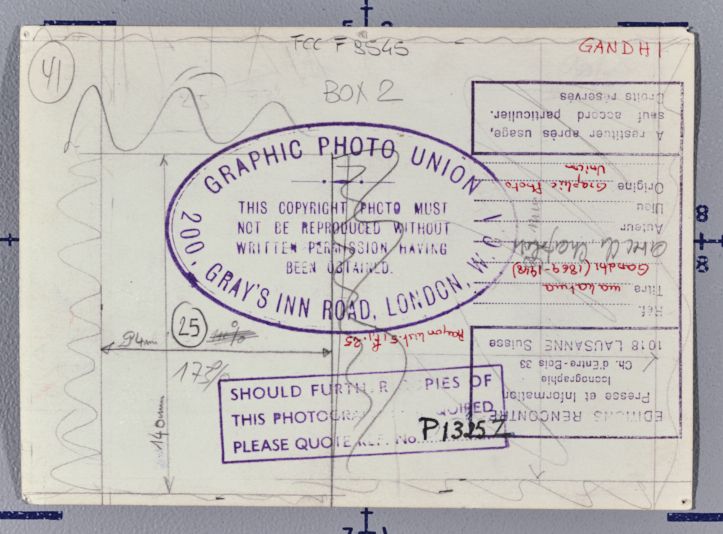 FCC F 8545
GANDHI
41
BOX 2
GRAPHIC PHOTO UNION
THIS COPYRIGHT PHOTO MUST
NOT BE REPRODUCED WITHOUT
WRITTEN PERMISSION HAVING
BEEN OBTAINED.
200, GRAY'S INN ROAD, LONDON, W.C.1
25
94mm
178%
140mm
SHOULD FURTHER COPIES OF
THIS PHOTOGRA QUIRED
PLEASE QUOTE REF. No. P13257
EDITIONS RENCONTRE
Presse et Information
Iconographie
Ch. d'Entre-Bois 33
1018 LAUSANNE Suisse
Réf.
Titre mahatma
Gandhi (1869-1948)
avec Chaplin
Auteur
Lieu
Origine Graphic Photo
Union
A restituer après usage,
sauf accord particulier.
Droits réservés
8
8